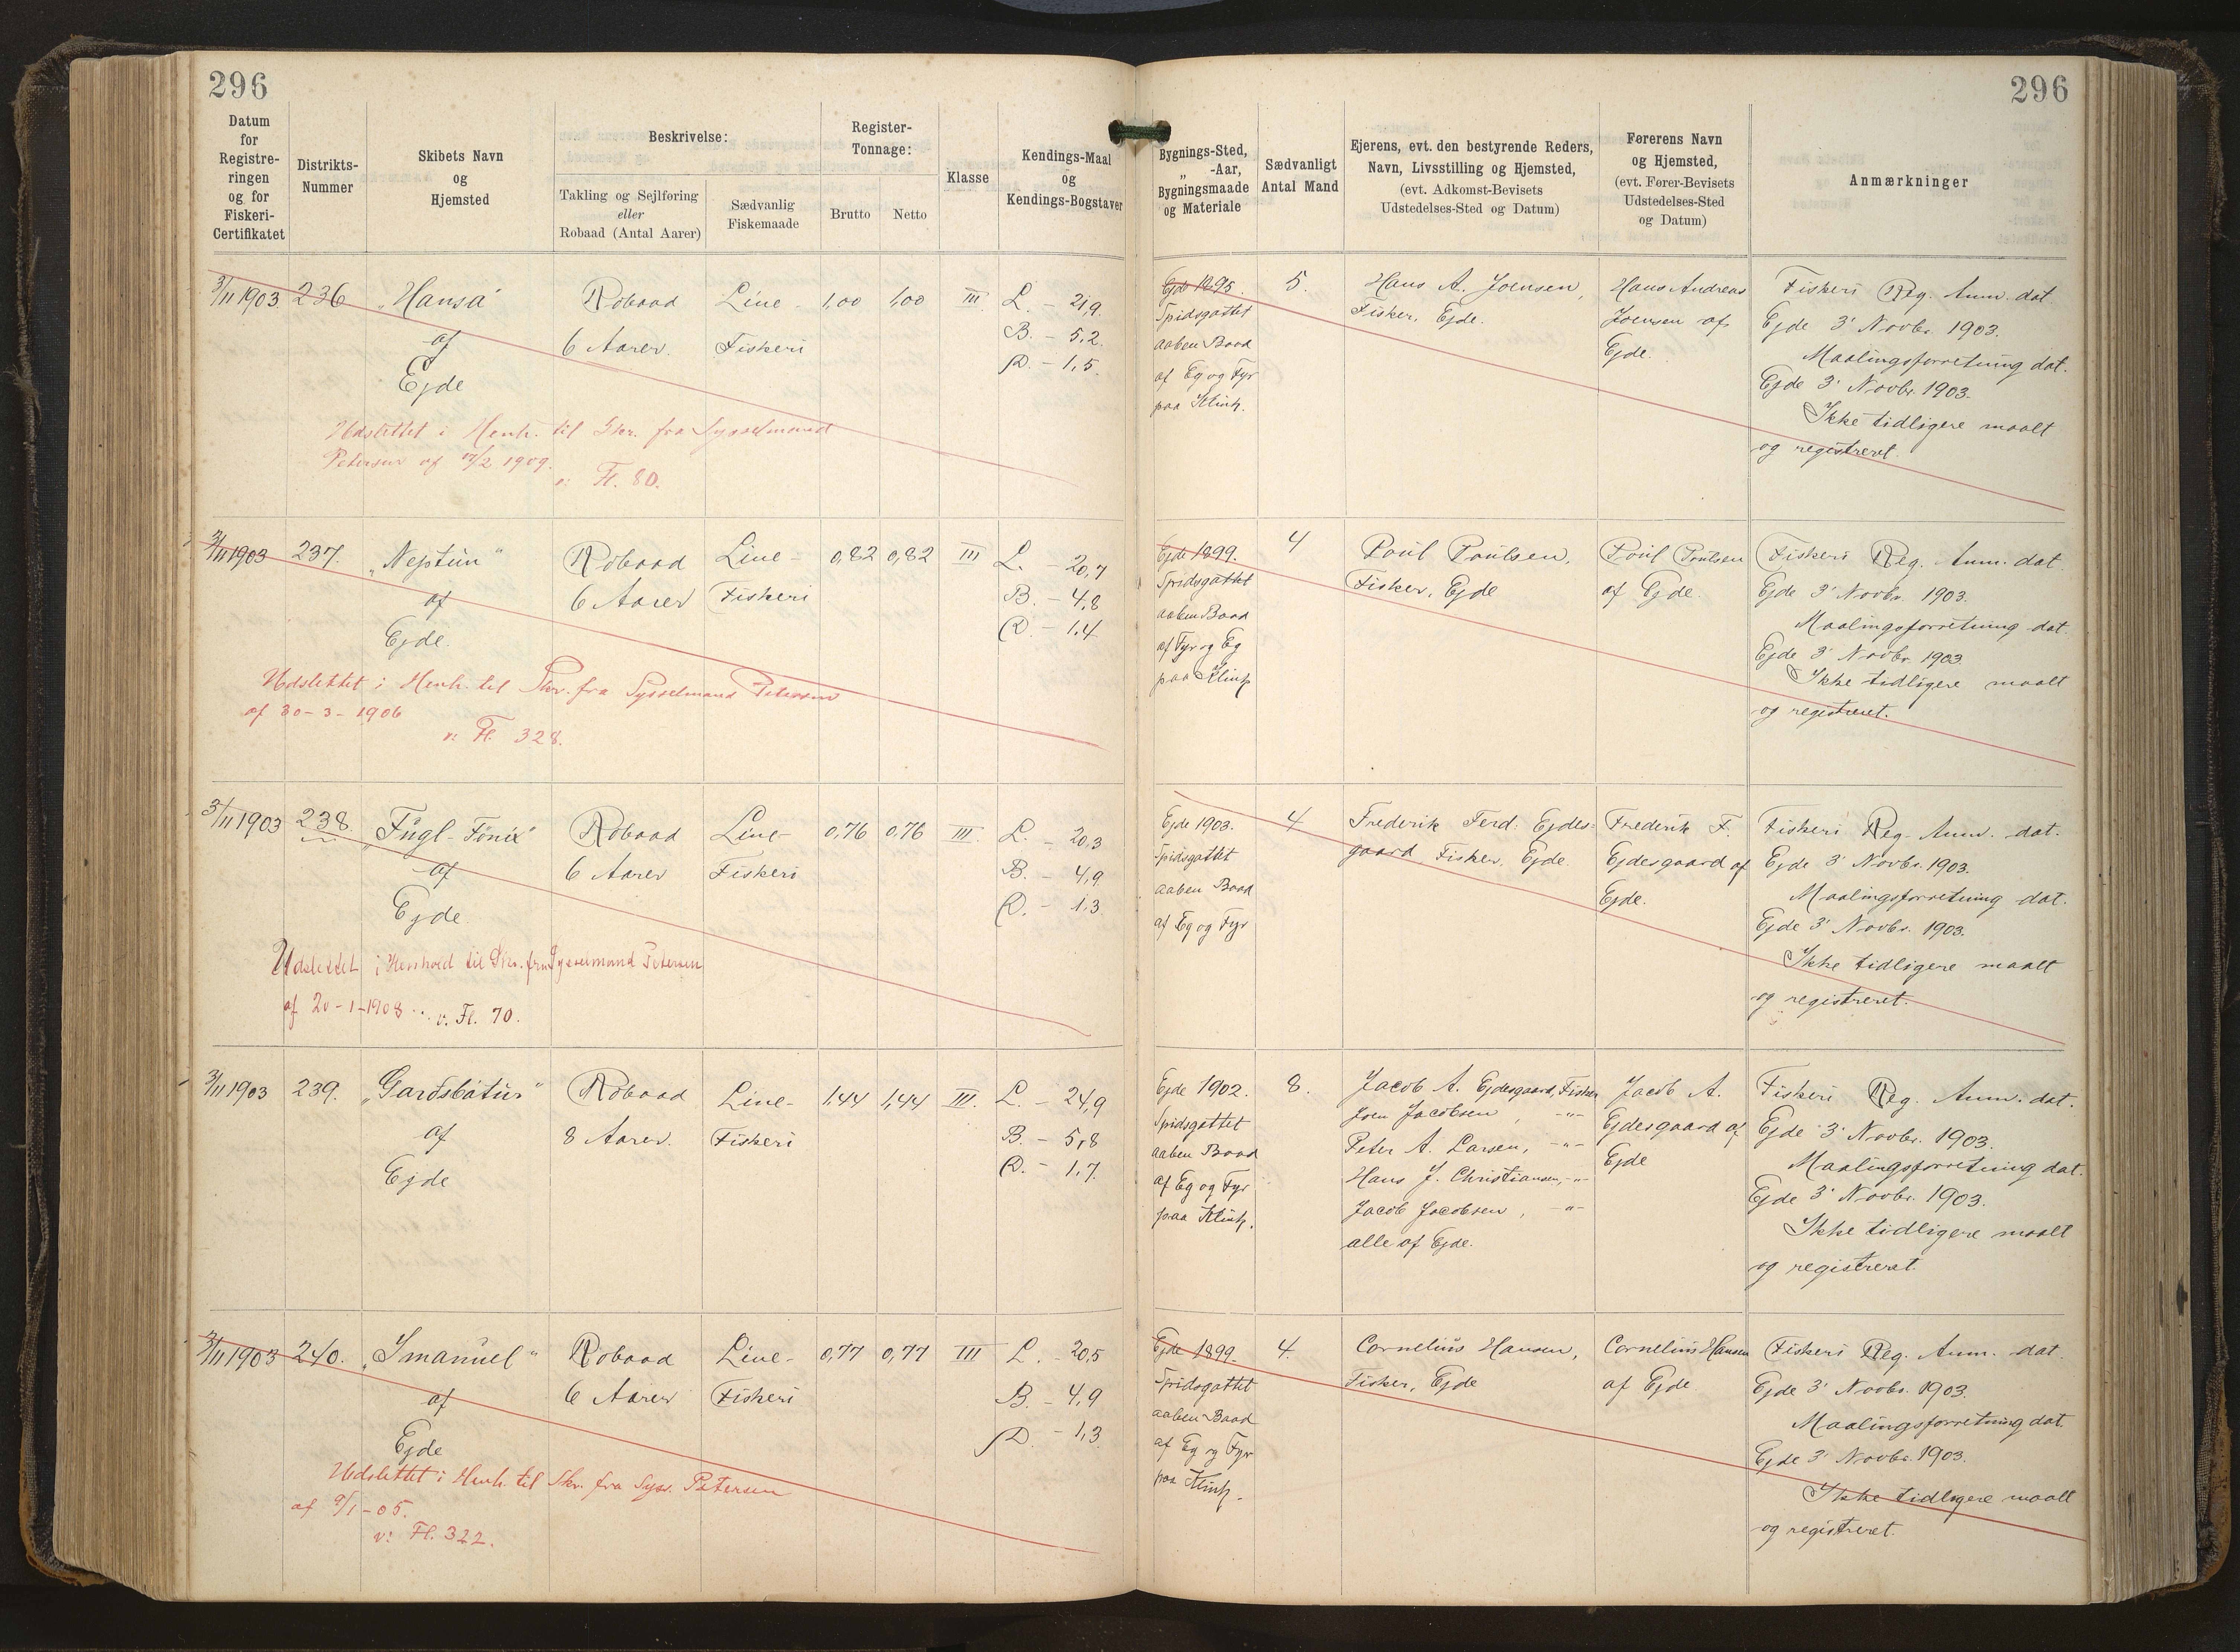 296
296
Datum
for
Registre-
ringen
og for
Fiskeri-
Certifikatet
Distrikts-
Nummer
Skibets Navn
og
Hjemsted
Beskrivelse:
Takling og Sejlføring
eller
Robaad (Antal Aarer)
Sædvanlig
Fiskemaade
Register-
Tonnage:
Brutto
Netto
Klasse
Kendings-Maal
og
Kendings-Bogstaver
Bygnings-Sted,
„ -Aar,
Bygningsmaade
og Materiale
Sædvanligt
Antal Mand
Ejerens, evt. den bestyrende Reders,
Navn, Livsstilling og Hjemsted,
(evt. Adkomst-Bevisets
Udstedelses-Sted og Datum)
Førerens Navn
og Hjemsted,
(evt. Fører-Bevisets
Udstedelses-Sted
og Datum)
Anmærkninger
3/11 1903
236
„Hansa“
af
Ejde
Robaad
6 Aarer.
Line-
Fiskeri
1,00
1,00
III
L. - 21,9
B. - 5,2.
D. - 1,5.
Ejde 1895.
Spidsgattet
aaben Baad
af Eg og Fyr
paa Klink.
5.
Hans A. Joensen,
Fisker, Ejde.
Hans Andreas
Joensen af
Ejde.
Fiskeri Reg. Anm. dat.
Ejde 3' Novbr. 1903.
Maalingsforretning dat.
Ejde 3' Novbr. 1903.
Ikke tidligere maalt
og registreret.
Udslettet i Henh. til Skr. fra Sysselmand
Petersen af /2 1909.
v: Fl. 80.
3/11 1903
237.
„Neptun“
af
Ejde.
Robaad
6 Aarer
Line-
Fiskeri
0,82
0,82
III
L. - 20,7
B. - 4,8
D. - 1,4
Ejde 1899.
Spidsgattet
aaben Baad
af Fyr og Eg
paa Klink
4
Poul Poulsen,
Fisker, Ejde
Poul Poulsen
af Ejde.
Fiskeri Reg. Anm. dat.
Ejde 3' Novbr. 1903.
Maalingsforretning dat.
Ejde 3' Novbr. 1903
Ikke tidligere maalt
og registreret.
Udslettet i Henh. til Skr. fra Sysselmand Petersen
af 30-3-1906
v: Fl. 328.
3/11 1903
238.
„Fugl-Fönix“
af
Ejde
Robaad
6 Aarer
Line-
Fiskeri
0,76
0,76
III.
L. - 20,3
B. - 4,9
D. - 1,3
Ejde 1903.
Spidsgattet
aaben Baad
af Eg og Fyr
4
Frederik Ferd. Ejdes-
gaard Fisker, Ejde.
Frederik F.
Ejdesgaard af
Ejde.
Fiskeri Reg. Anm. dat.
Ejde 3' Novbr. 1903.
Maalingsforretning dat.
Ejde 3' Novbr. 1903.
Ikke tidligere maalt
og registreret.
Udslettet i Henhold til Skr. fra Sysselmand Petersen
af 20-1-1908 .. v. Fl. 70.
3/11 1903
239.
„Garðsbátur“
af
Ejde
Robaad
8 Aarer.
Line-
Fiskeri
1,44
1,44
III.
L. - 24,9
B. - 5,8
D. - 1,7.
Ejde 1902.
Spidsgattet
aaben Baad
af Eg og Fyr
paa Klink.
8.
Jacob A. Ejdesgaard, Fisker
Joen Jacobsen, -"-
Peter A. Larsen, -"-
Hans J. Christiansen, -"-
Jacob Jacobsen, -"-
alle af Ejde.
Jacob A.
Ejdesgaard af
Ejde
Fiskeri Reg. Anm. dat.
Ejde 3' Novbr. 1903.
Maalingsforretning dat.
Ejde 3' Novbr. 1903.
Ikke tidligere maalt
og registreret.
3/11 1903
240.
„Imanuel“
af
Ejde
Robaad
6 Aarer
Line-
Fiskeri
0,77
0,77
III
L. - 20,5
B. - 4,9
D. - 1,3
Ejde 1899.
Spidsgattet
aaben Baad
af Eg og Fyr
paa Klink.
4.
Cornelius Hansen,
Fisker, Ejde
Cornelius Hansen
af Ejde
Fiskeri Reg. Anm. dat.
Ejde 3' Novbr. 1903.
Maalingsforretning dat.
Ejde 3' Novbr. 1903.
Ikke tidligere maalt
og registreret.
Udslettet i Henh. til Skr. fra Syss. Petersen
af 9/1-05.
v: Fl. 322.